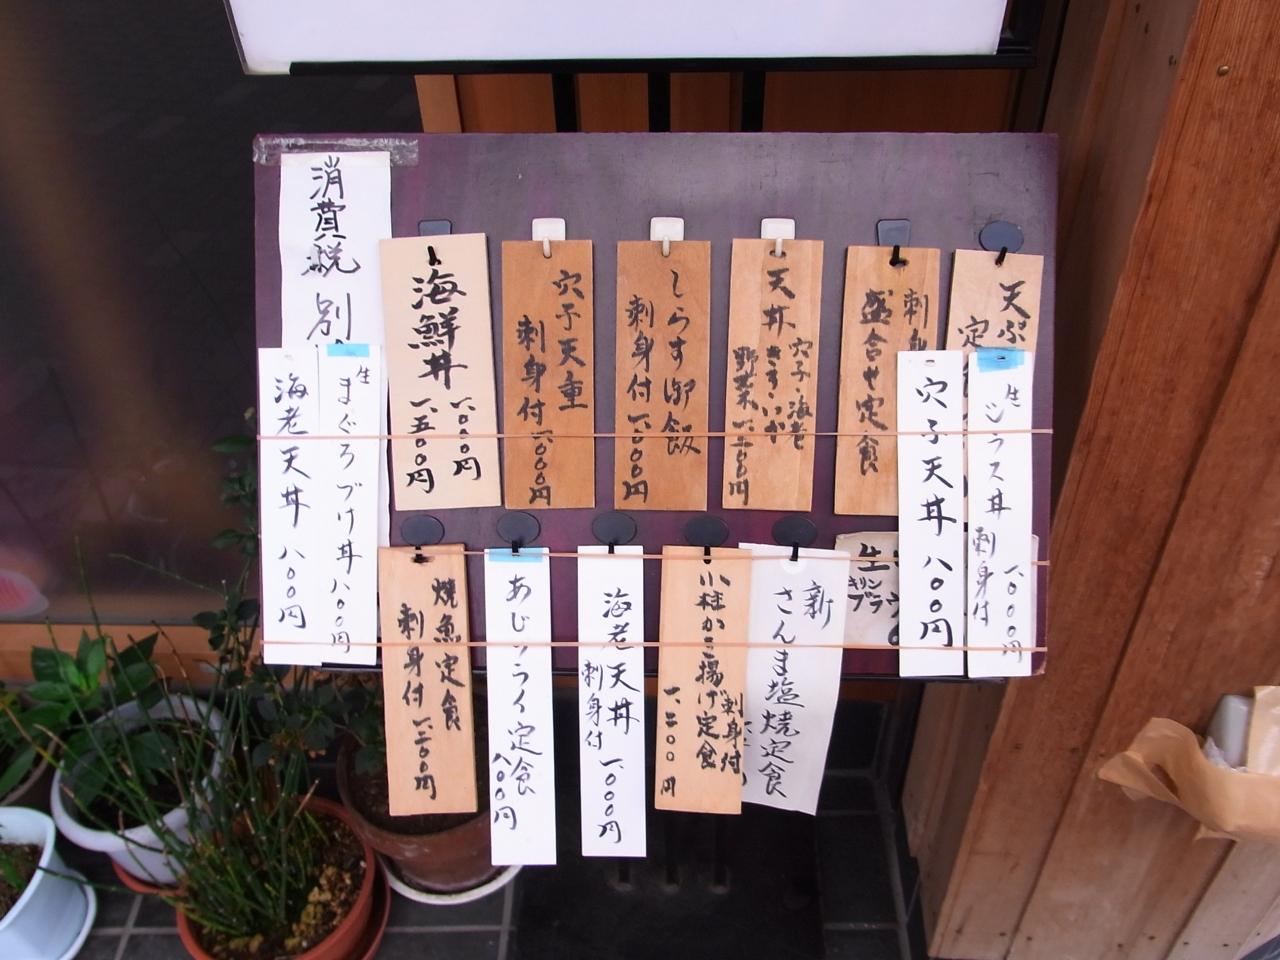 天ぷ
定
刺身
盛合せ定食
天丼
穴子・海老
きす・いか
野菜 一、二〇〇円
しらす御飯
刺身付 一、〇〇〇円
穴子天重
刺身付 一、〇〇〇円
海鮮丼
一、〇〇〇円
一、五〇〇円
消費税 別
生シラス丼
刺身付 一、〇〇〇円
穴子天丼 八〇〇円
生まぐろづけ丼 八〇〇円
海老天丼 八〇〇円
生
キリン
ブラウ
新
さんま塩焼定食
小柱かき揚げ定食
刺身付
一、二〇〇円
海老天丼
刺身付 一、〇〇〇円
あじフライ定食
八〇〇円
焼魚定食
刺身付 一、二〇〇円